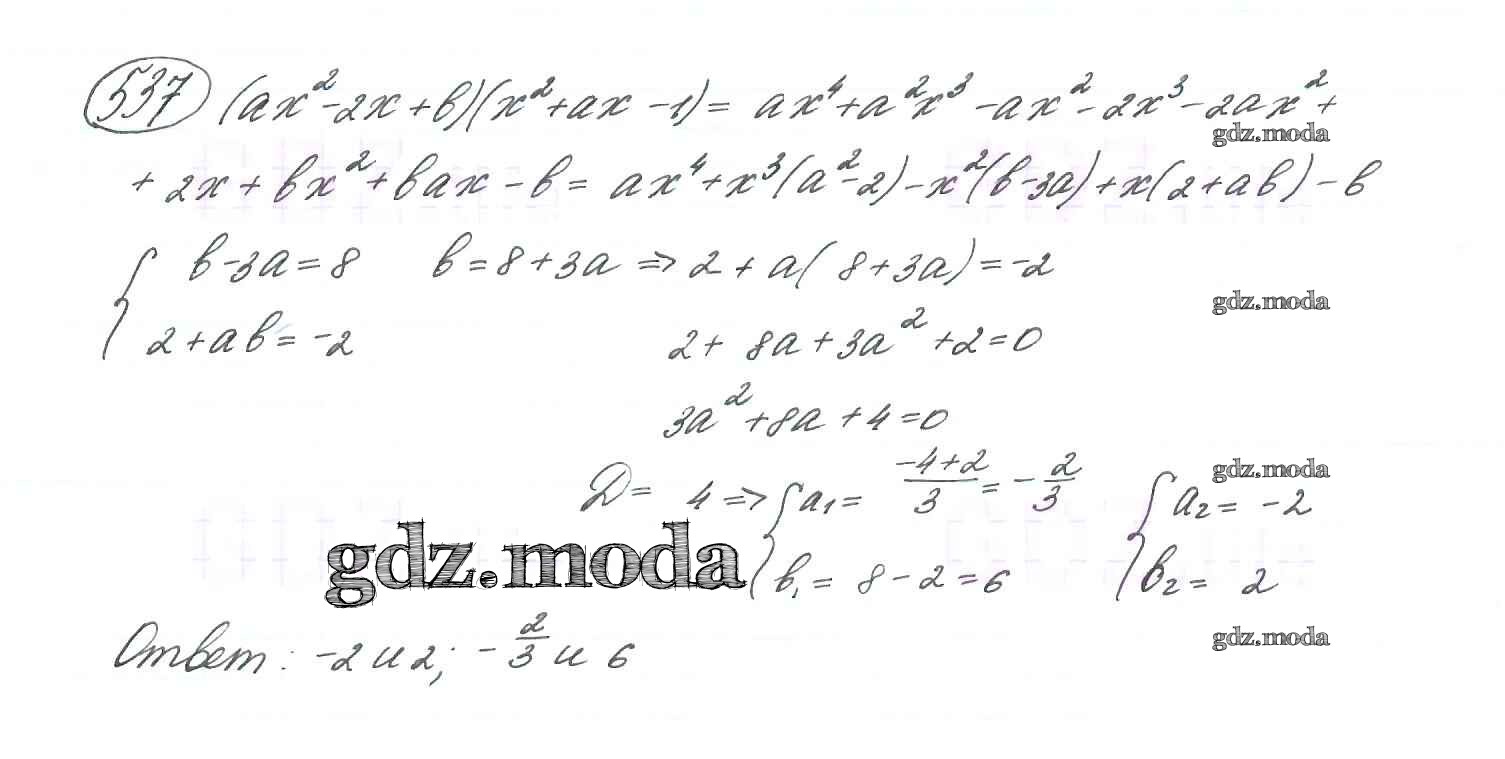 537 (ax² - 2x + b)(x² + ax - 1) = ax⁴ + a²x³ - ax² - 2x³ - 2ax² +
gdz.moda
+ 2x + bx² + bax - b = ax⁴ + x³(a² - 2) - x²(b - 3a) + x(2 + ab) - b
{ b - 3a = 8 b = 8 + 3a ⇒ 2 + a(8 + 3a) = -2
gdz.moda
2 + ab = -2 2 + 8a + 3a² + 2 = 0
3a² + 8a + 4 = 0
gdz.moda
D = 4 ⇒ { a₁ = (-4+2)/3 = -2/3 { a₂ = -2
gdz.moda
b₁ = 8 - 2 = 6 b₂ = 2
gdz.moda
Ответ: -2 и 2; -2/3 и 6